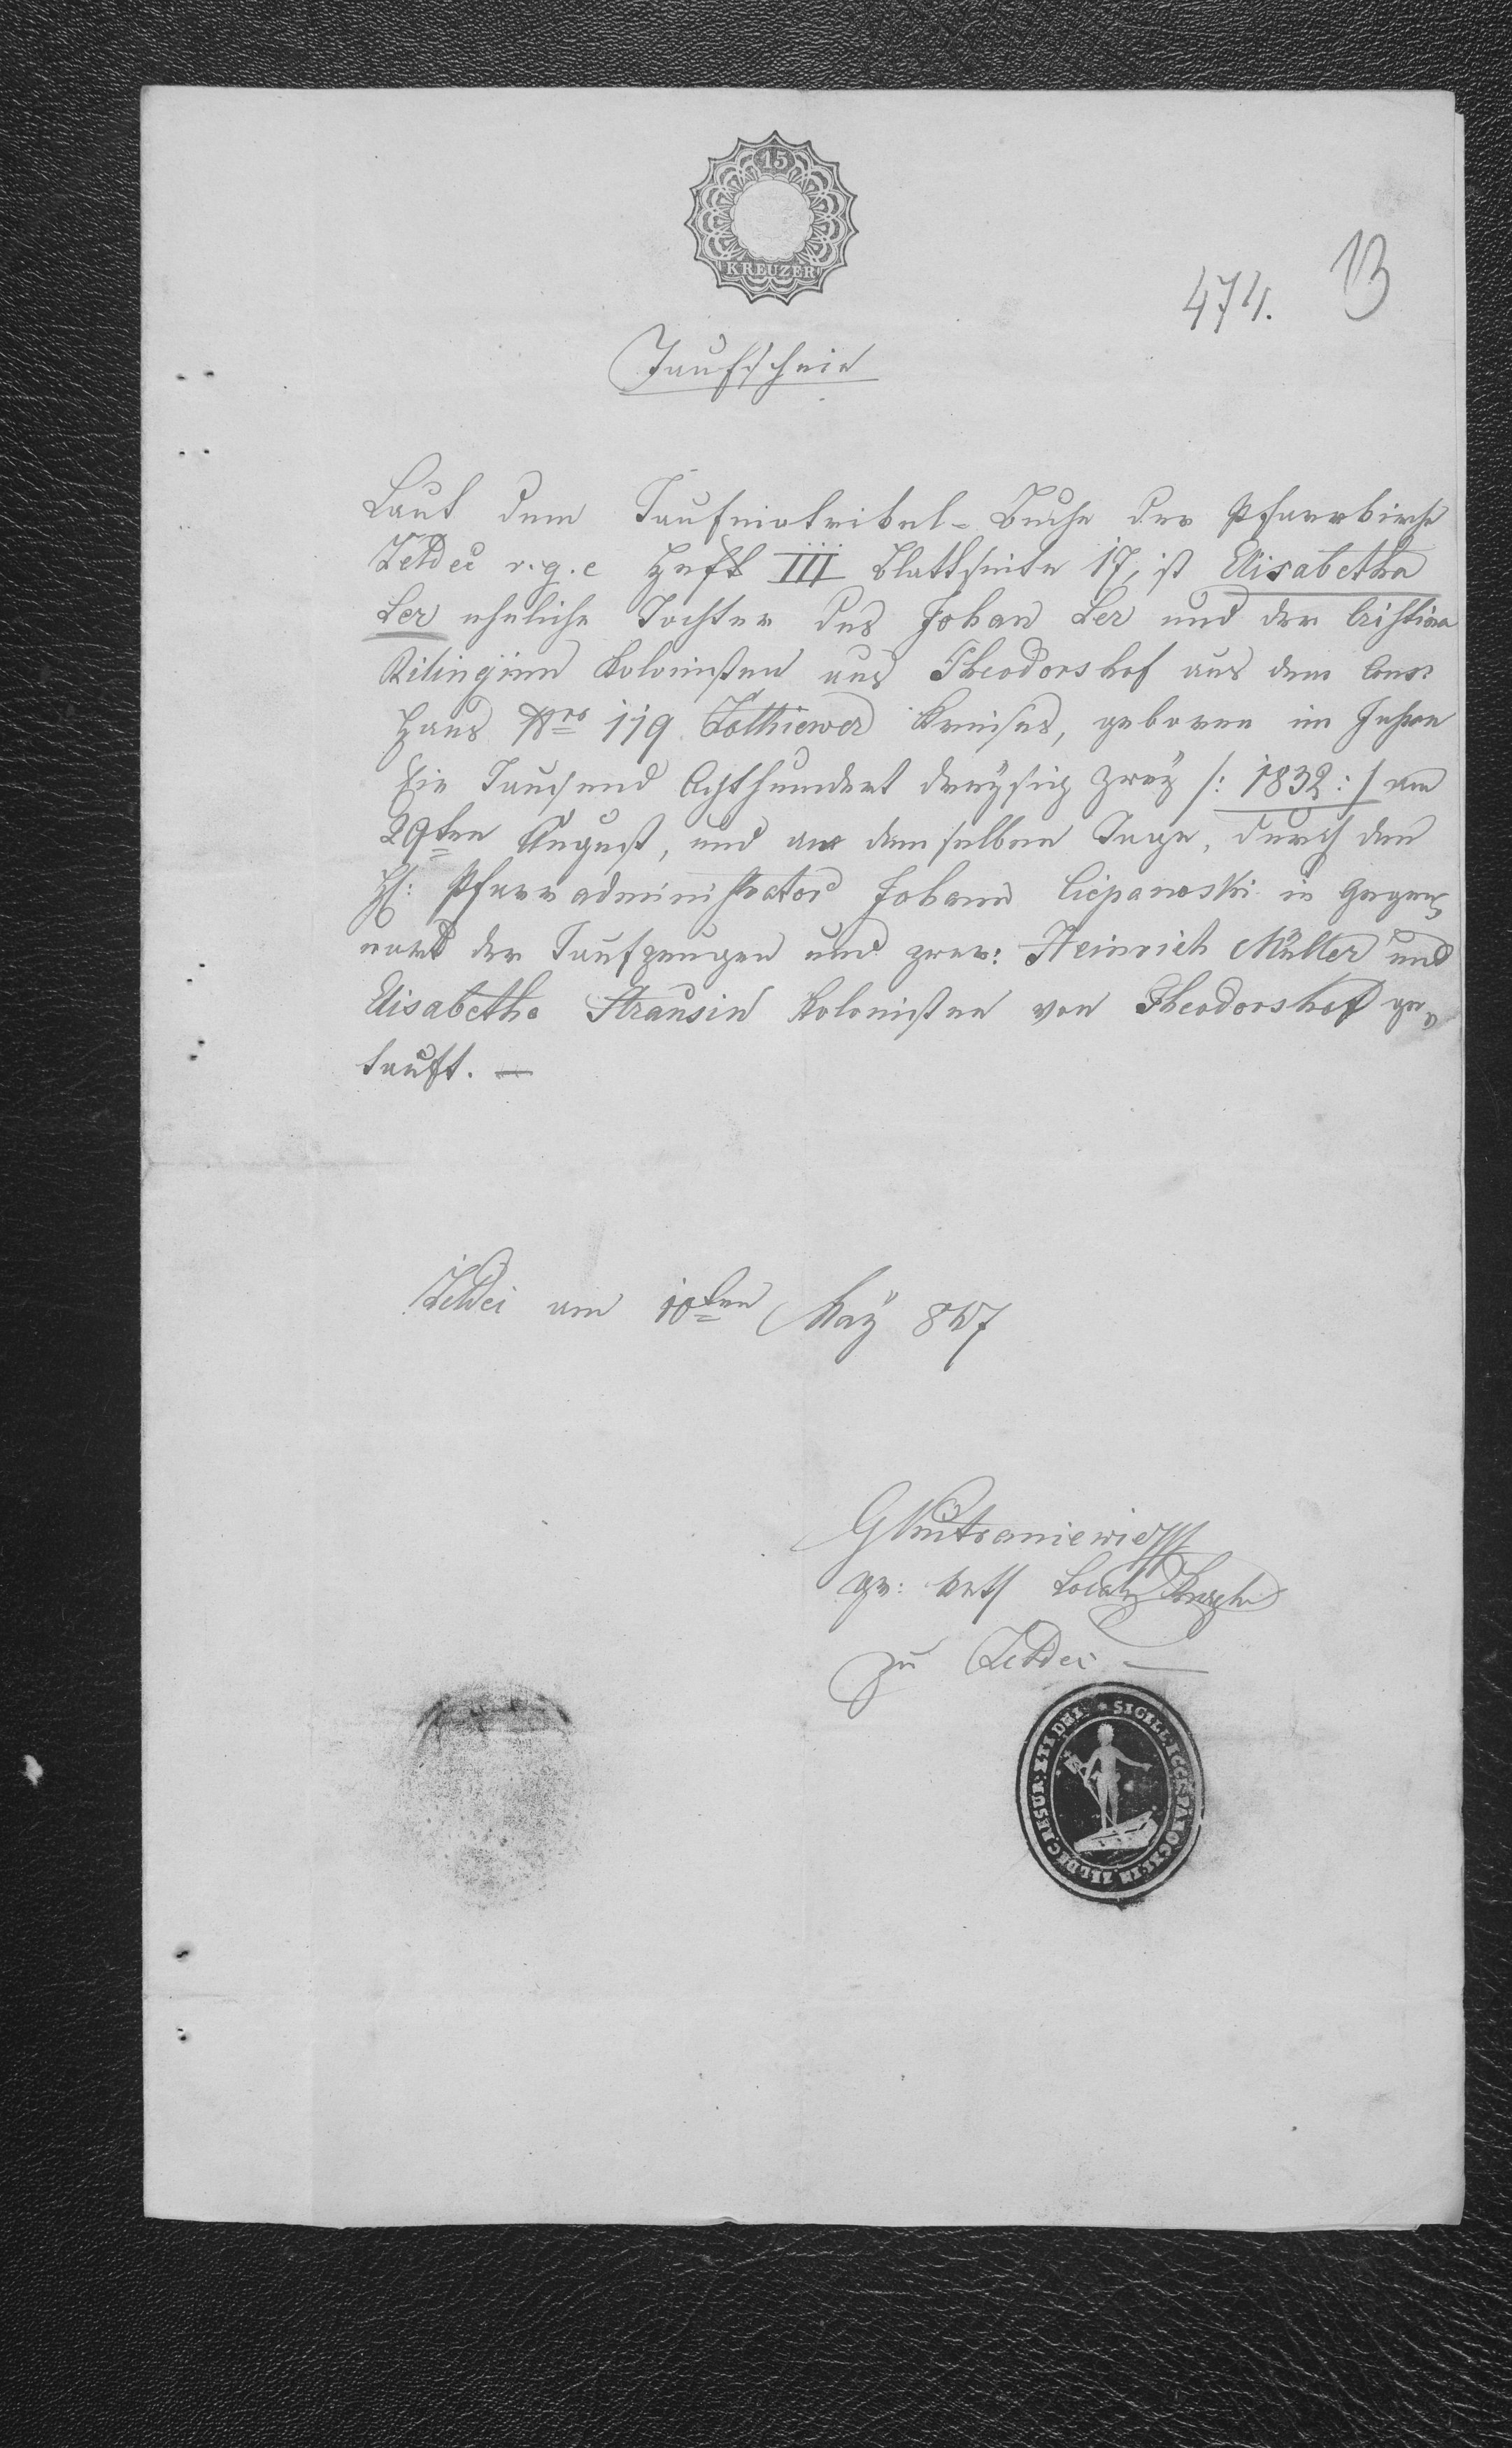 15
KREUZER
474. 13
Taufschein
Laut dem Taufmatrikel-Buche der Pfarrkirche
Zeldec r.g.c Heft III Blattseite 17, ist Elisabetha
Ler eheliche Tochter des Johan Ler und der Cristina
Kolonisten aus Theodorshof aus dem Cons:
Haus Nro 119 Zolkiewer Kreises, geboren im Jahre
Ein Tausend Achthundert dreysig zwey /: 1832 :/ am
29ten August, und an demselben Tage, durch den
H: Pfarradministrator Johann Ciepanoski in Gegen=
wart der Taufzeugen und zwar: Heinrich Müller und
Elisabetha Strausin Kolonisten von Theodorshof ge=
tauft. —
Zeldec am 10ten May 867
gr: kath
zu Zeldec —
SIGILL. ECCL. PAROCH. IN ZELDEC. RESUR.